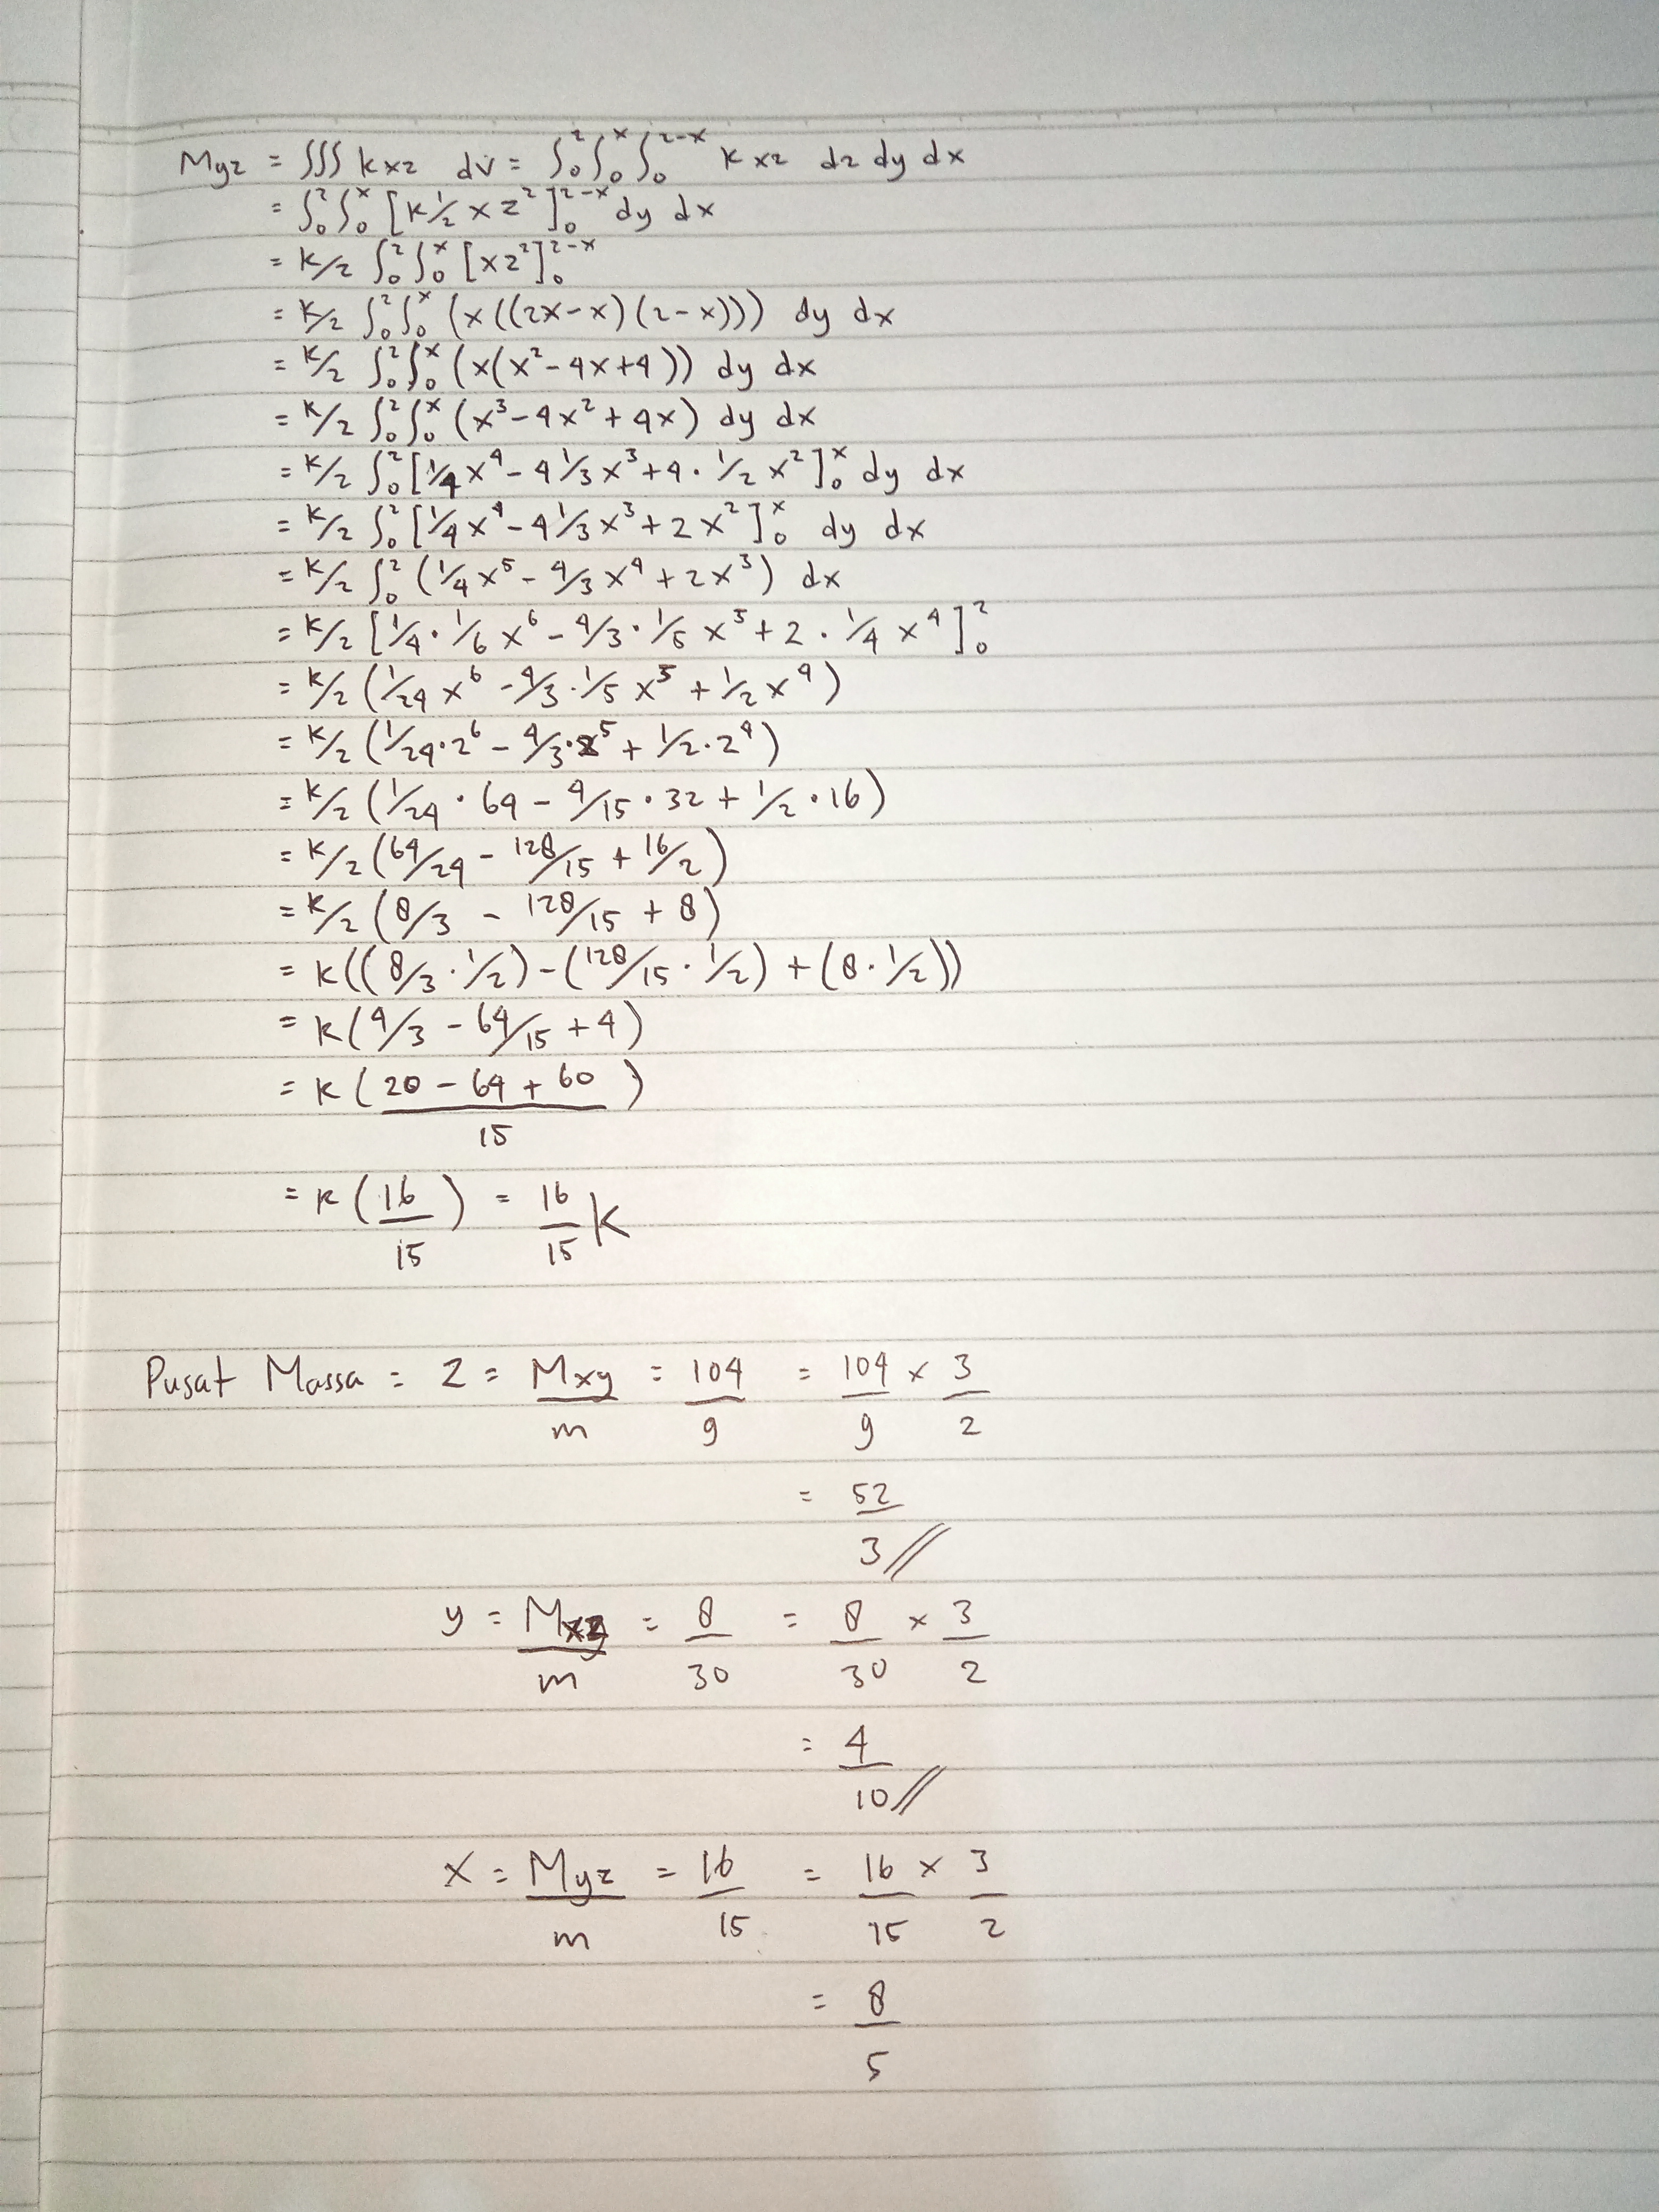 Myz = ∫∫∫ kxz dv = ∫₀² ∫₀ˣ ∫₀²⁻ˣ k xz dz dy dx
= ∫₀² ∫₀ˣ [k 1/2 x z²]₀²⁻ˣ dy dx
= k/2 ∫₀² ∫₀ˣ [xz²]₀²⁻ˣ
= k/2 ∫₀² ∫₀ˣ (x((2x-x)(2-x))) dy dx
= k/2 ∫₀² ∫₀ˣ (x(x²-4x+4)) dy dx
= k/2 ∫₀² ∫₀ˣ (x³-4x²+4x) dy dx
= k/2 ∫₀² [1/4 x⁴ - 4 1/3 x³ + 4 · 1/2 x²]₀ˣ dy dx
= k/2 ∫₀² [1/4 x⁴ - 4 1/3 x³ + 2x²]₀ˣ dy dx
= k/2 ∫₀² (1/4 x⁵ - 4/3 x⁴ + 2x³) dx
= k/2 [1/4 · 1/6 x⁶ - 4/3 · 1/5 x⁵ + 2 · 1/4 x⁴]₀²
= k/2 (1/24 x⁶ - 4/3 · 1/5 x⁵ + 1/2 x⁴)
= k/2 (1/24 · 2⁶ - 4/3 · 2⁵ + 1/2 · 2⁴)
= k/2 (1/24 · 64 - 4/15 · 32 + 1/2 · 16)
= k/2 (64/24 - 128/15 + 16/2)
= k/2 (8/3 - 128/15 + 8)
= k((8/3 · 1/2) - (128/15 · 1/2) + (8 · 1/2))
= k(4/3 - 64/15 + 4)
= k (20 - 64 + 60)
15
= k (16/15) = 16/15 k
Pusat Massa = z = Mxy/m = 104/9 = 104/9 × 3/2
= 52/3 //
y = Mxz/m = 8/30 = 8/30 × 3/2
= 4/10 //
x = Myz/m = 16/15 = 16/15 × 3/2
= 8/5